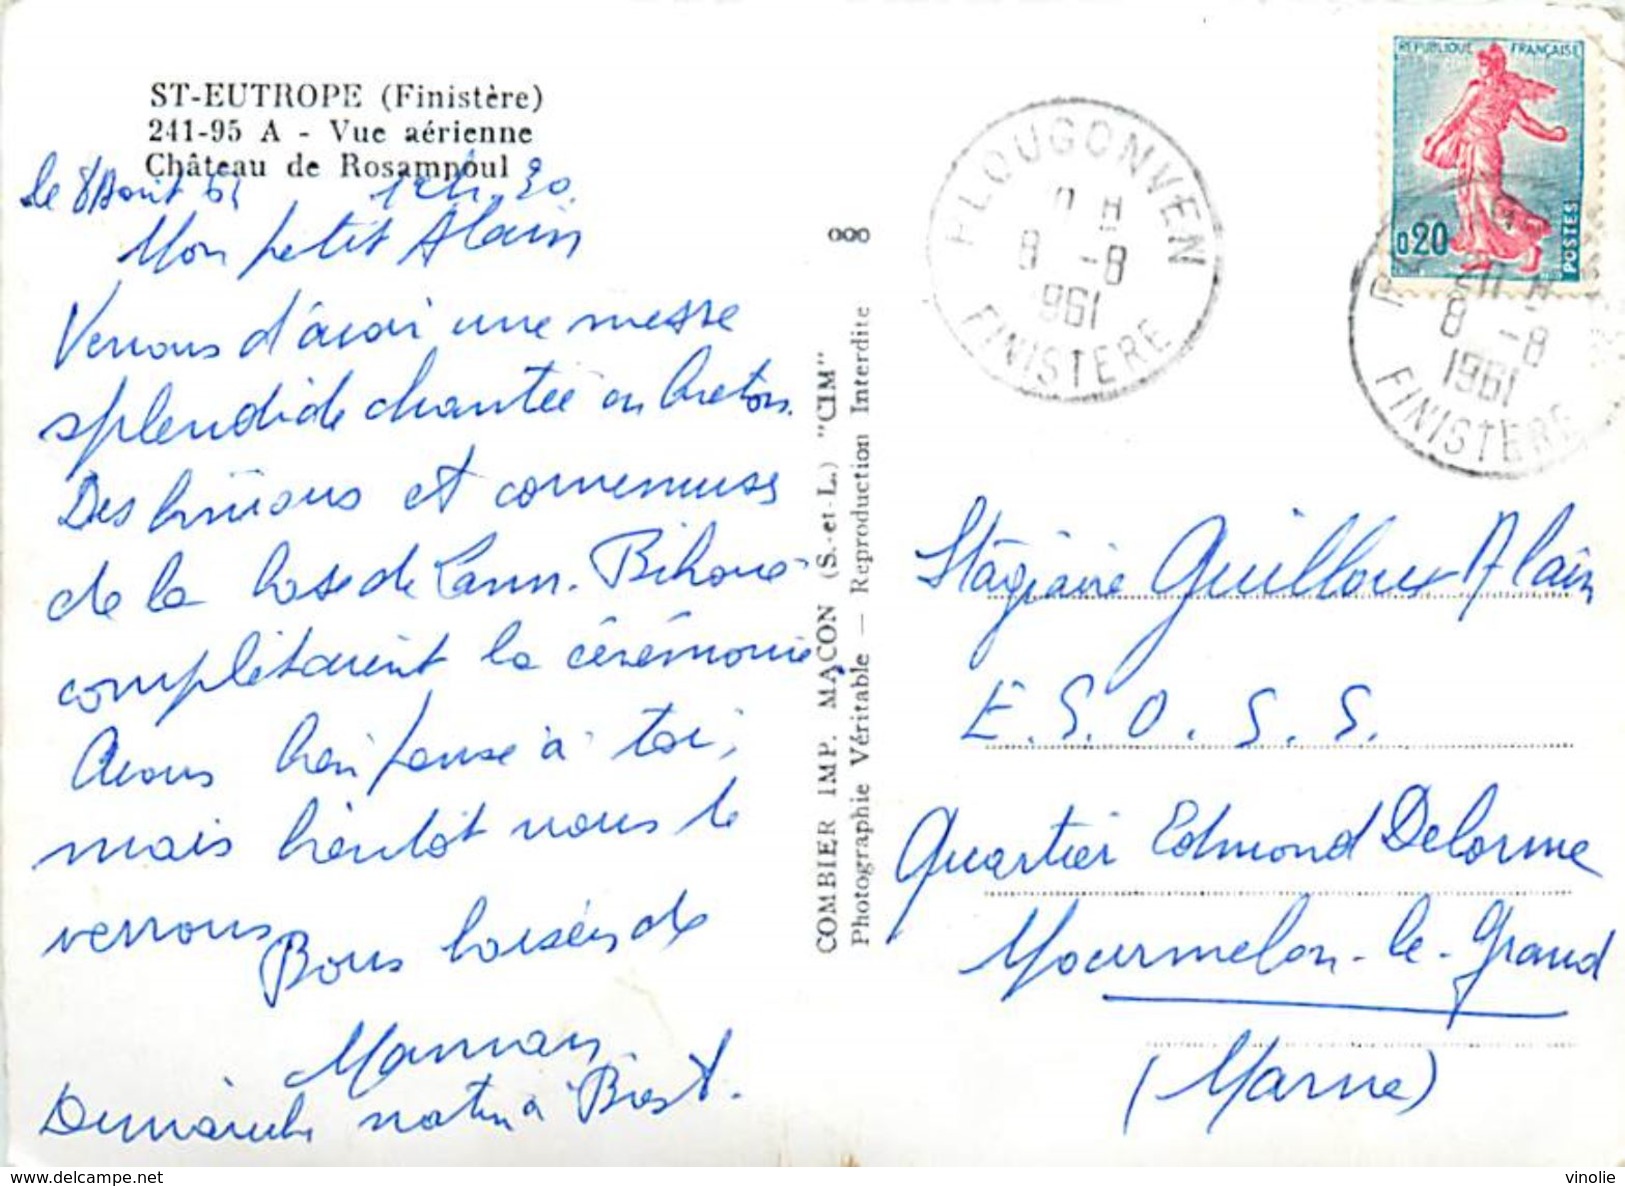 ST-EUTROPE (Finistère)
241-95 A - Vue aérienne
Château de Rosampoul
le 8 Août 61 12h.30
Mon petit Alain
Venons d'avoir une messe
splendide chantée en breton.
Des binious et cornemuses
de la base de Lann. Bihoué
complétaient la cérémonie,
Avons bien pensé à toi,
mais bientôt nous te
verrons.
Bons baisers de
Maman
Dimanche matin à Brest.
COMBIER IMP. MACON (S.-et-L.) "CIM"
Photographie Véritable — Reproduction Interdite
PLOUGONVEN
8 -8
1961
FINISTERE
REPUBLIQUE FRANÇAISE
0,20
POSTES
8 -8
1961
FINISTERE
Stagiaire Guilloux Alain
E.S.O.S.S.
Quartier Edmond Delorme
Mourmelon-le-Grand
(Marne)
vinolie